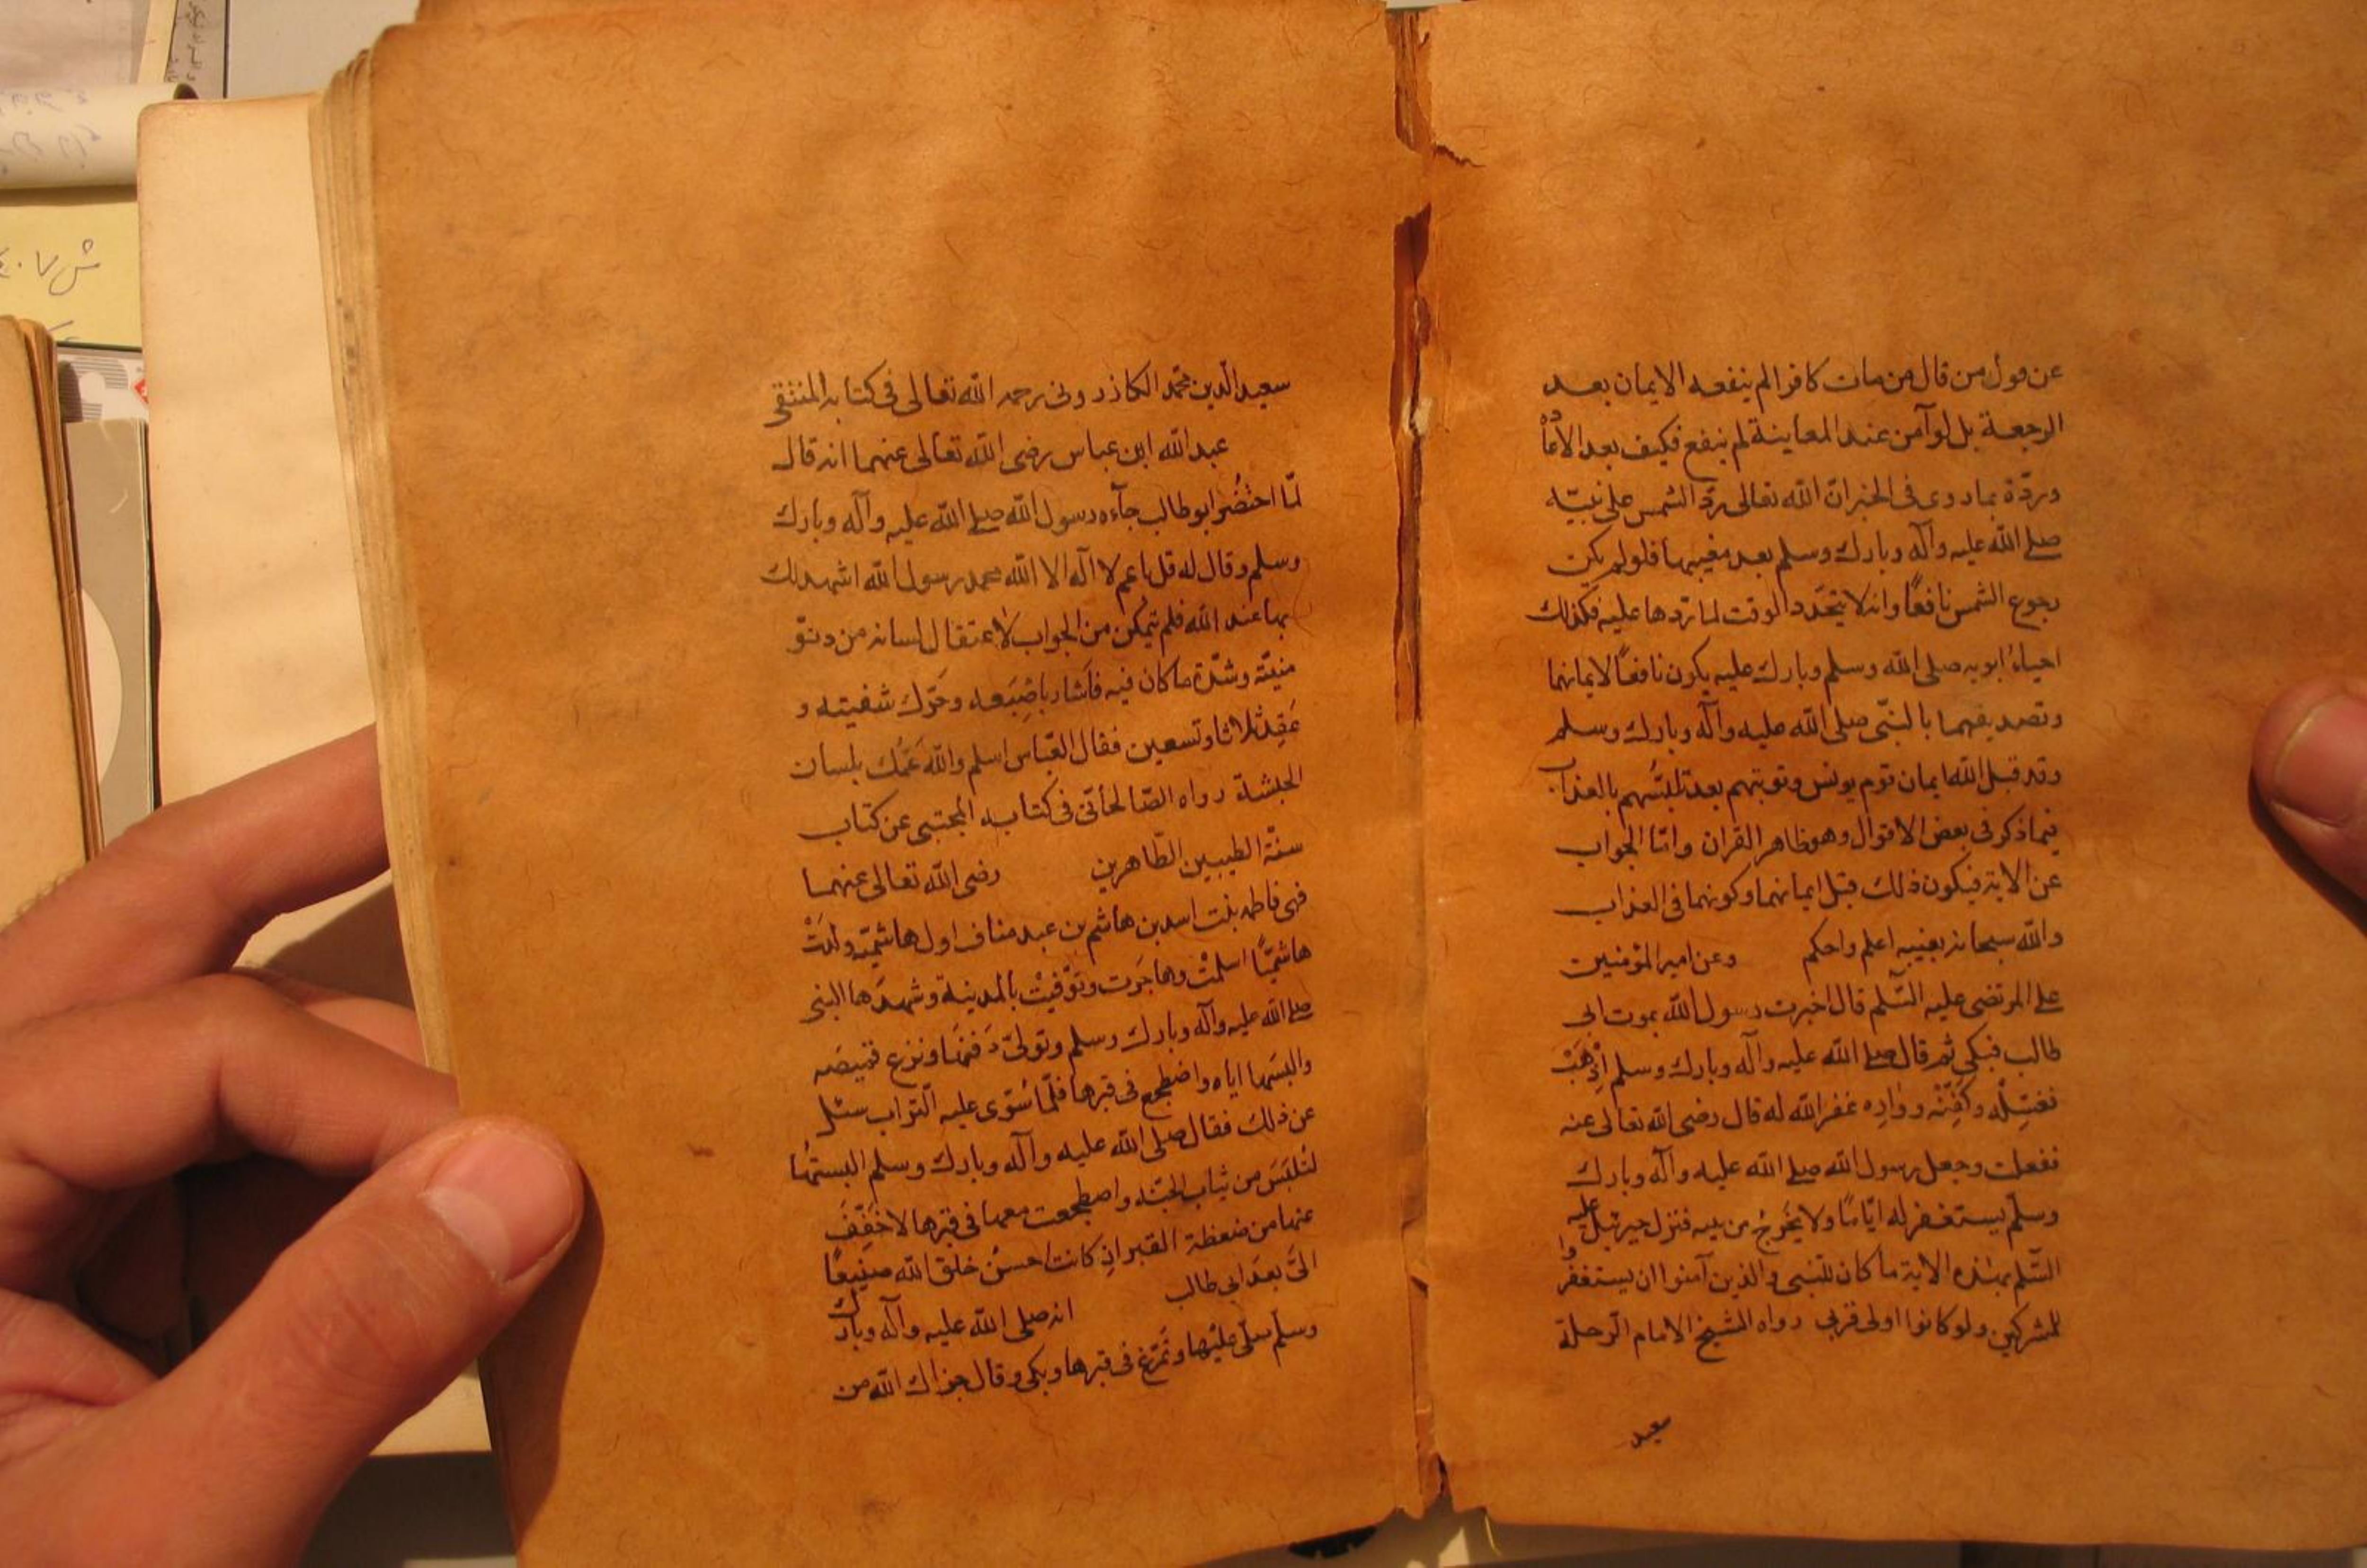 عن قول من قال من مات كافرا لم ينفعه الايمان بعد
الرجعة بل لو آمن عند المعاينة لم ينفع فكيف بعد الاعادة
وردّة بما روى فى الخبر انّ الله تعالى ردّ الشمس على نبيّه
صلى الله عليه وآله وبارك وسلم بعد مغيبها فلو لم يكن
رجوع الشمس نافعًا وانه لا يتجدّد الوقت لما ردها عليه فكذلك
احياءُ ابويه صلى الله وسلم وبارك عليه يكون نافعًا لايمانهما
وتصديقهما بالنبّى صلى الله عليه وآله وبارك وسلم
وقد قبل الله ايمان قوم يونس وتوبتهم بعد تلبّسهم بالعذاب
فيما ذكر فى بعض الاقوال وهو ظاهر القران وامّا الجواب
عن الاية فيكون ذلك قبل ايمانهما وكونهما فى العذاب
والله سبحانه بغيبه اعلم واحكم وعن امير المؤمنين
على المرتضى عليه السّلم قال اخبرت رسول الله بموت ابى
طالب فبكى ثم قال صلى الله عليه وآله وبارك وسلم اِذْهَبْ
فغسّله وكَفِّنْه ووارِه غفر الله له قال رضى الله تعالى عنه
ففعلت وجعل رسول الله صلى الله عليه وآله وبارك
وسلّم يستغفر له ايّامًا ولا يخرج من بيته فنزل جبرئيل عليه
السّلم بهذه الاية ما كان للنبى والذين آمنوا ان يستغفروا
للمشركين ولو كانوا اولى قربى رواه الشيخ الامام الرّحلة
سعيد
سعيد الدّين محمّد الكازرونى رحمه الله تعالى فى كتابه المنتقى
عبد الله ابن عباس رضى الله تعالى عنهما انه قال
لمّا احتُضُر ابو طالب جآءه رسول الله صلى الله عليه وآله وبارك
وسلم وقال له قل يا عم لا اله الا الله محمد رسول الله اشهد لك
بها عند الله فلم يتمكن من الجواب لاعتقال لسانه من دنوّ
منيّته وشدّة ما كان فيه فاشار باصْبَعه وحَرّك شفيته و
عَقد ثلاثا وتسعين فقال العبّاس اسلم والله عَمُّك بلسان
الحبشة رواه الصّالحانّى فى كتابه المجتبى عن كتاب
سنّة الطيبين الطّاهرين رضى الله تعالى عنهما
فهى فاطمه بنت اسد بن هاشم بن عبد مناف اول هاشميّة ولدَتْ
هاشميّاً اسلمتْ وهاجَرت وتوّفيتْ بالمدينة وشهدَها النبى
صلى الله عليه وآله وبارك وسلم وتولىّ دَفنهَا ونزع قميصَه
والبسَها اياه واضطجع فى قبرها فلمّا سُوّى عليه التّراب سئل
عن ذلك فقال صلى الله عليه وآله وبارك وسلم البستُها
لتُلبَسَ من ثياب الجنّه واضطجعت معها فى قبرها لاخفِّفَ
عنها من ضغطة القبر اذ كانت احسنُ خلق الله صنيعًا
الىَّ بعدَ ابى طالب انه صلى الله عليه وآله وبارك
وسلم صلّى عليْها وتَمرّغ فى قبرها وبكى وقال جزاك الله من